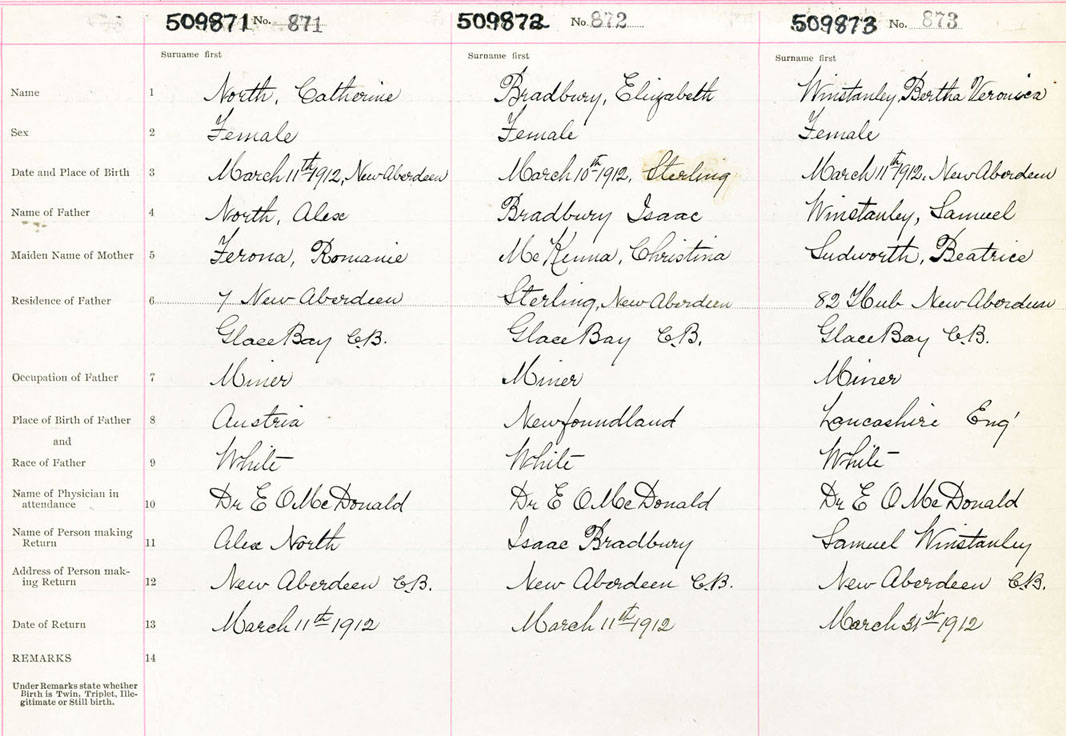 509871 No. 871 509872 No. 872 509873 No. 873
Surname first Surname first Surname first
Name 1 North, Catherine Bradbury, Elizabeth Winstanley, Bertha Veronica
Sex 2 Female Female Female
Date and Place of Birth 3 March 11th 1912, New Aberdeen March 10th 1912, Sterling March 11th 1912, New Aberdeen
Name of Father 4 North, Alex Bradbury Isaac Winstanley, Samuel
Maiden Name of Mother 5 Ferona, Romanie McKenna, Christina Sudworth, Beatrice
Residence of Father 6 7 New Aberdeen Sterling, New Aberdeen 82 Hub New Aberdeen
Glace Bay C.B. Glace Bay C.B. Glace Bay C.B.
Occupation of Father 7 Miner Miner Miner
Place of Birth of Father 8 Austria Newfoundland Lancashire Eng'
and
Race of Father 9 White White White
Name of Physician in
attendance 10 Dr E O McDonald Dr E O McDonald Dr E O McDonald
Name of Person making
Return 11 Alex North Isaac Bradbury Samuel Winstanley
Address of Person mak-
ing Return 12 New Aberdeen C.B. New Aberdeen C.B. New Aberdeen C.B.
Date of Return 13 March 11th 1912 March 11th 1912 March 31st 1912
REMARKS 14
Under Remarks state whether
Birth is Twin, Triplet, Ille-
gitimate or Still birth.